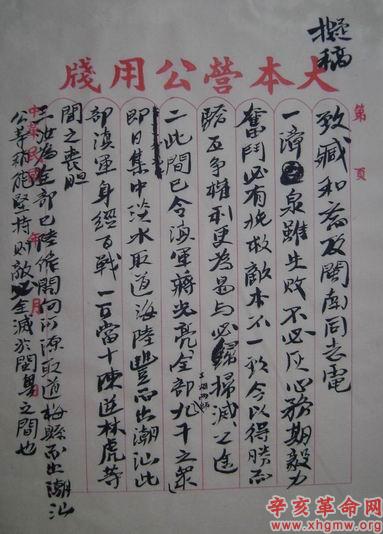 擬稿
大本營公用牋
第 頁
致臧和齋及閩南同志電
一漳泉雖失敗不必灰心務期毅力
奮鬥必有挽救敵本不一致今以得勝而
驕互爭權利更為易与必歸掃滅之途
二此間已令滇軍蔣光亮全部九千之眾
即日集中淡水取道海陸豐而出潮汕此
部滇軍身經百戰一可當十陳逆林虎等
聞之喪胆
三汝為全部已陸續開向河源取道梅縣而出潮汕
公等稍能堅持則敵必全滅於閩粵之間也
中華民國 年 月
辛亥革命网
www.xhgmw.org